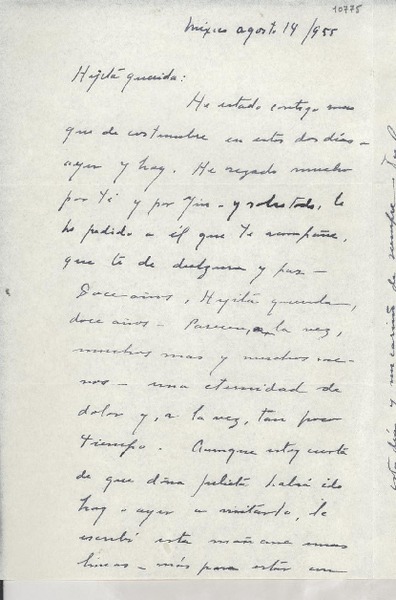 10775
México agosto 14/955
Hijita querida:
He estado contigo mas
que de costumbre en estos dos días -
ayer y hoy. He rezado mucho
por ti y por Yin - y sobre todo, le
he pedido a él que te acompañe,
que te de dulzura y paz -
Doce años, Hijita querida,
doce años - Parecen, a la vez,
muchos mas y muchos me-
nos - una eternidad de
dolor y, a la vez, tan poco
tiempo. Aunque estoy cierta
de que dina Julieta habrá ido
hoy o ayer a visitarlo, le
escribí esta mañana unas
líneas - más para estar con
este día y mi cariño de siempre -